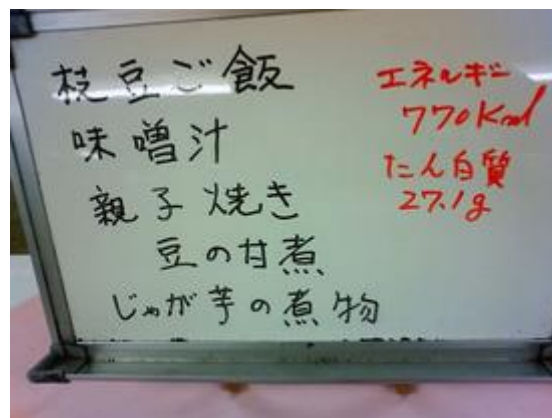 枝豆ご飯
味噌汁
親子焼き
豆の甘煮
じゃが芋の煮物
エネルギー
770Kcal
たん白質
27.1g